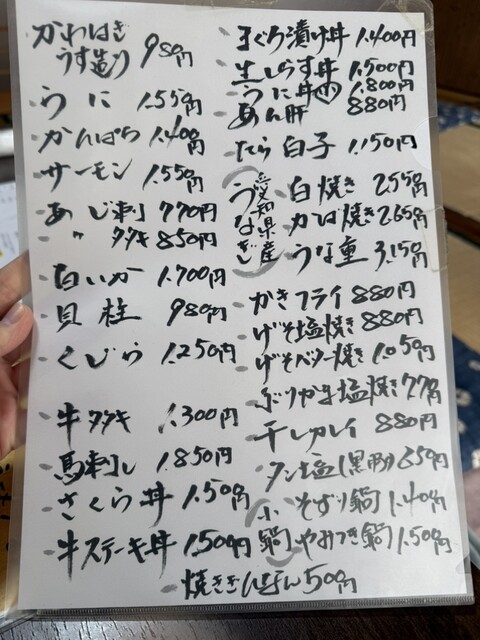 かわはぎ
うす造り 980円
うに 1.550円
かんぱち 1.400円
サーモン 1.550円
あじ刺 770円
〃 タタキ 850円
白いか 1.700円
貝柱 980円
くじら 1.250円
牛タタキ 1.300円
馬刺し 1.850円
さくら丼 1.500円
牛ステーキ丼 1.500円
まぐろ漬け丼 1.400円
生しらす丼 1.500円
うに丼 小 1.800円
あん肝 880円
たら白子 1.150円
※愛知県産
うなぎ
白焼き 2.550円
かば焼き 2.650円
うな重 3.150円
かきフライ 880円
げそ塩焼き 880円
げそバター焼き 1.050円
ぶりかま塩焼き 770円
干しカレイ 880円
タン塩(黒豚) 850円
小鍋
そずり鍋 1.400円
やみつき鍋 1.500円
焼きぎんなん 500円